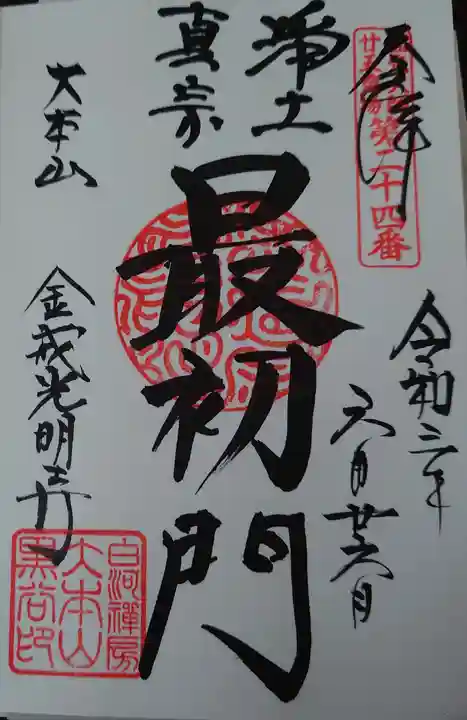 奉拝
第二十四番
令和三年
六月廿六日
浄土
真宗
最初門
大本山
金戒光明寺
白河禅房
大本山
黒谷印